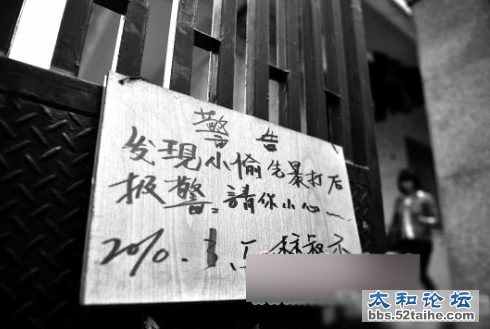 警告
发現小愉先暴打后
报警。請你小心
2010.1.5
太和论坛
bbs.52taihe.com